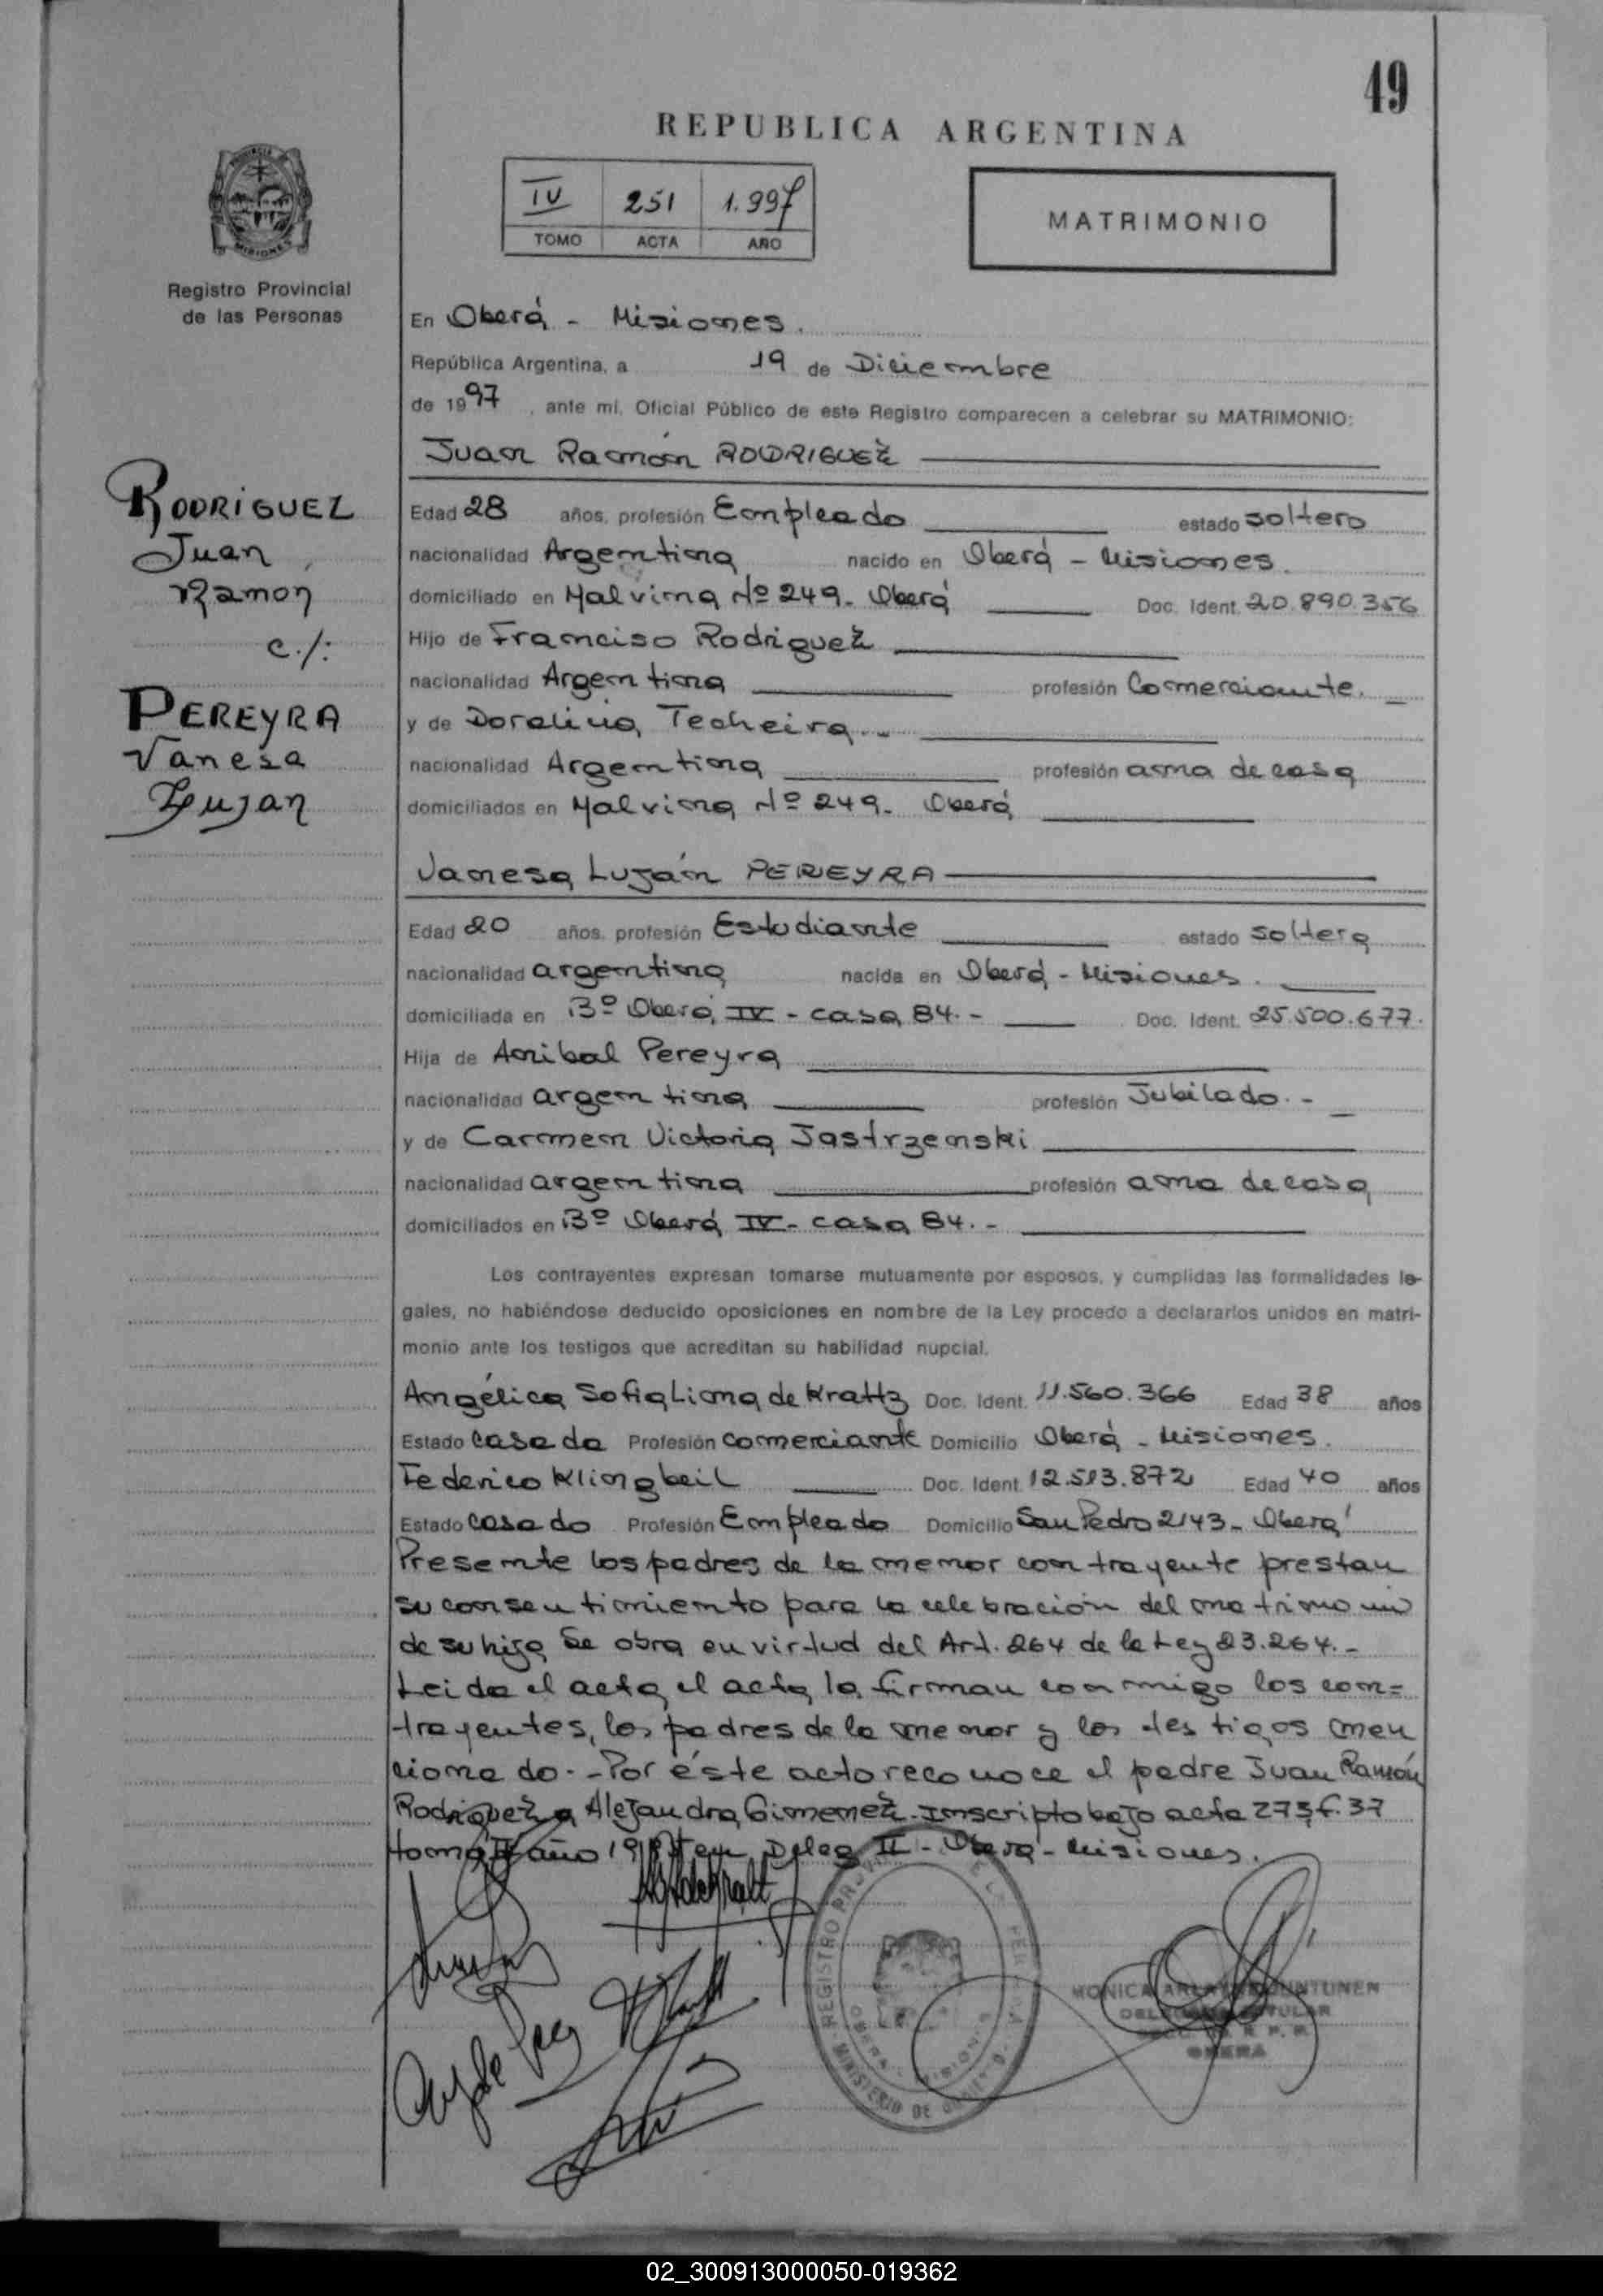 49
REPUBLICA ARGENTINA
IV 251 1.997
TOMO ACTA AÑO
MATRIMONIO
PROVINCIA
MISIONES
Registro Provincial
de las Personas
RODRIGUEZ
Juan
Ramon
c./:
PEREYRA
Vanesa
Lujan
En Oberá - Misiones.
República Argentina, a 19 de Diciembre
de 1997, ante mí, Oficial Público de este Registro comparecen a celebrar su MATRIMONIO:
Juan Ramón RODRIGUEZ
Edad 28 años, profesión Empleado estado soltero
nacionalidad Argentina nacido en Oberá - Misiones.
domiciliado en Malvina Nº 249. Oberá Doc. Ident. 20.890.356
Hijo de Franciso Rodriguez
nacionalidad Argentina profesión Comerciante.
y de Doralina Techeira..
nacionalidad Argentina profesión ama de casa
domiciliados en Malvina Nº 249. Oberá
Vanesa Luján PEREYRA
Edad 20 años, profesión Estudiante estado soltera
nacionalidad argentina nacida en Oberá - Misiones.
domiciliada en Bº Oberá IV - casa 84.- Doc. Ident. 25.500.677.
Hija de Anibal Pereyra
nacionalidad argentina profesión Jubilado.-
y de Carmen Victoria Jastrzemski
nacionalidad argentina profesión ama de casa
domiciliados en Bº Oberá IV - casa 84.-
Los contrayentes expresan tomarse mutuamente por esposos, y cumplidas las formalidades le-
gales, no habiéndose deducido oposiciones en nombre de la Ley procedo a declararlos unidos en matri-
monio ante los testigos que acreditan su habilidad nupcial.
Angélica Sofia Liona de Krattz Doc. Ident. 11.560.366 Edad 38 años
Estado casada Profesión comerciante Domicilio Oberá - Misiones.
Federico Klingbeil Doc. Ident. 12.513.872 Edad 40 años
Estado casado Profesión Empleado Domicilio San Pedro 2143 - Oberá
Presente los padres de la menor contrayente prestan
su consentimiento para la celebración del matrimonio
de su hija Se obra en virtud del Art. 264 de la Ley 23.264.-
Leida el acta, el acta, la firman conmigo los con=
trayentes, los padres de la menor y los testigos men
cionado.- Por éste acto reconoce el padre Juan Ramón
Rodriguez a Alejandra Gimenez. Inscripto bajo acta 273 f. 37
año Deleg II - Oberá - Misiones.
REGISTRO
MINISTERIO DE
OBERA
02_300913000050-019362